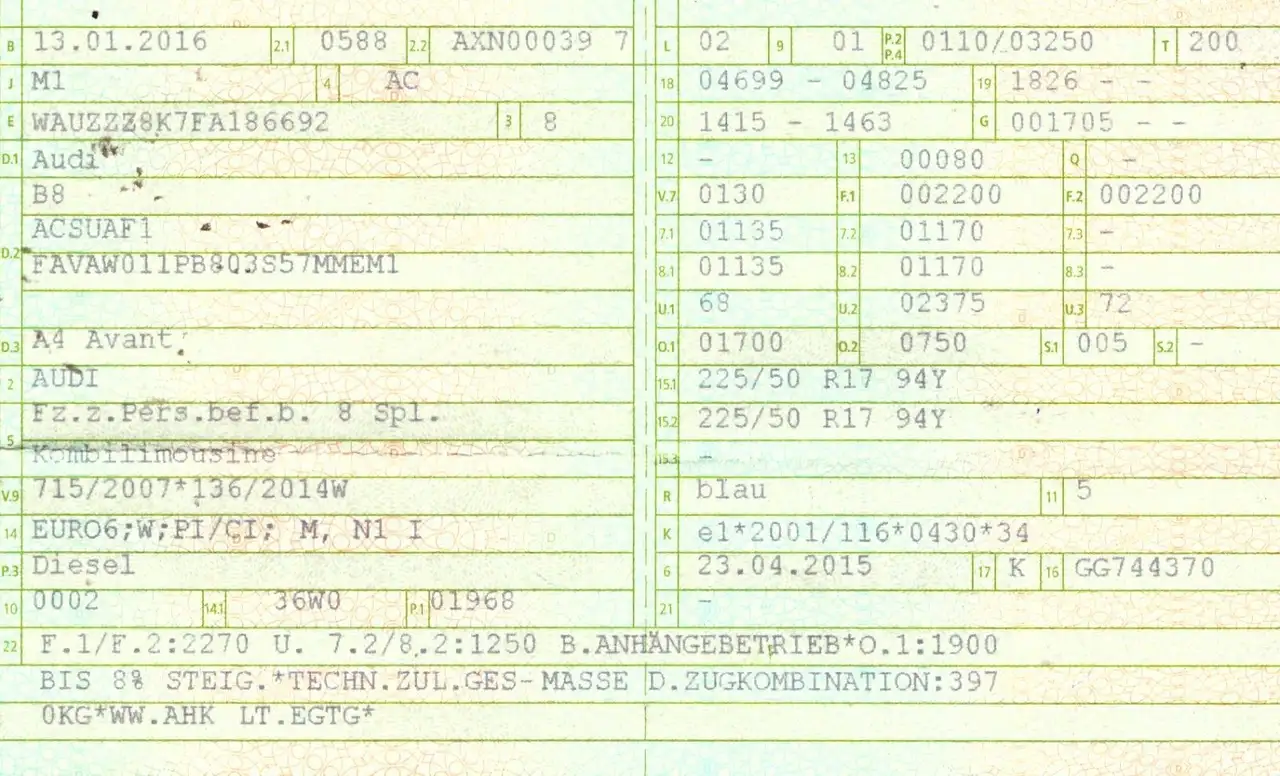 B 13.01.2016 2.1 0588 2.2 AXN00039 7
J M1 4 AC
E WAUZZZ8K7FA186692 3 8
D.1 Audi
B8
D.2 ACSUAF1
FAVAW011PB8Q3S57MMEM1
D.3 A4 Avant
2 AUDI
5 Fz.z.Pers.bef.b. 8 Spl.
Kombilimousine
V.9 715/2007*136/2014W
14 EURO6;W;PI/CI; M, N1 I
P.3 Diesel
10 0002 14.1 36W0 P.1 01968
L 02 9 01 P.2 P.4 0110/03250 T 200
18 04699 - 04825 19 1826 - -
20 1415 - 1463 G 001705 - -
12 - 13 00080 Q -
V.7 0130 F.1 002200 F.2 002200
7.1 01135 7.2 01170 7.3 -
8.1 01135 8.2 01170 8.3 -
U.1 68 U.2 02375 U.3 72
O.1 01700 O.2 0750 S.1 005 S.2 -
15.1 225/50 R17 94Y
15.2 225/50 R17 94Y
15.3 -
R blau 11 5
K e1*2001/116*0430*34
6 23.04.2015 17 K 16 GG744370
21 -
22 F.1/F.2:2270 U. 7.2/8.2:1250 B.ANHÄNGEBETRIEB*O.1:1900
BIS 8% STEIG.*TECHN.ZUL.GES-MASSE D.ZUGKOMBINATION:397
0KG*WW.AHK LT.EGTG*